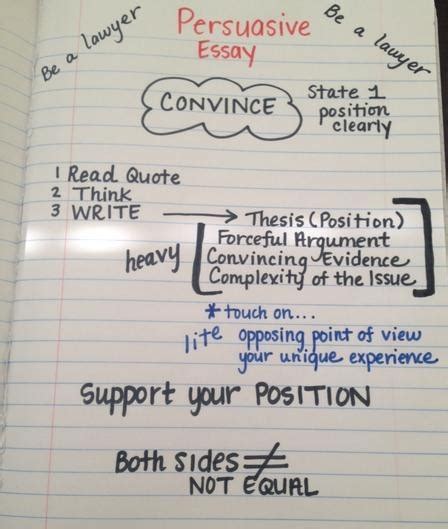 Be a lawyer
Persuasive
Essay
Be a lawyer
CONVINCE
State 1
position
clearly
1 Read Quote
2 Think
3 WRITE → Thesis (Position)
Forceful Argument
heavy
Convincing Evidence
Complexity of the Issue
* touch on...
lite opposing point of view
your unique experience
Support your POSITION
Both sides ≠
NOT EQUAL